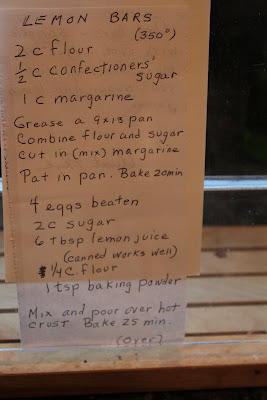 LEMON BARS
(350°)
2 c flour
½ c confectioners'
sugar
1 c margarine
Grease a 9x13 pan
Combine flour and sugar
Cut in (mix) margarine
Pat in pan. Bake 20min
4 eggs beaten
2c sugar
6 tbsp lemon juice
(canned works well)
¼ c. flour
1 tsp baking powder
Mix and pour over hot
crust Bake 25 min.
(over)